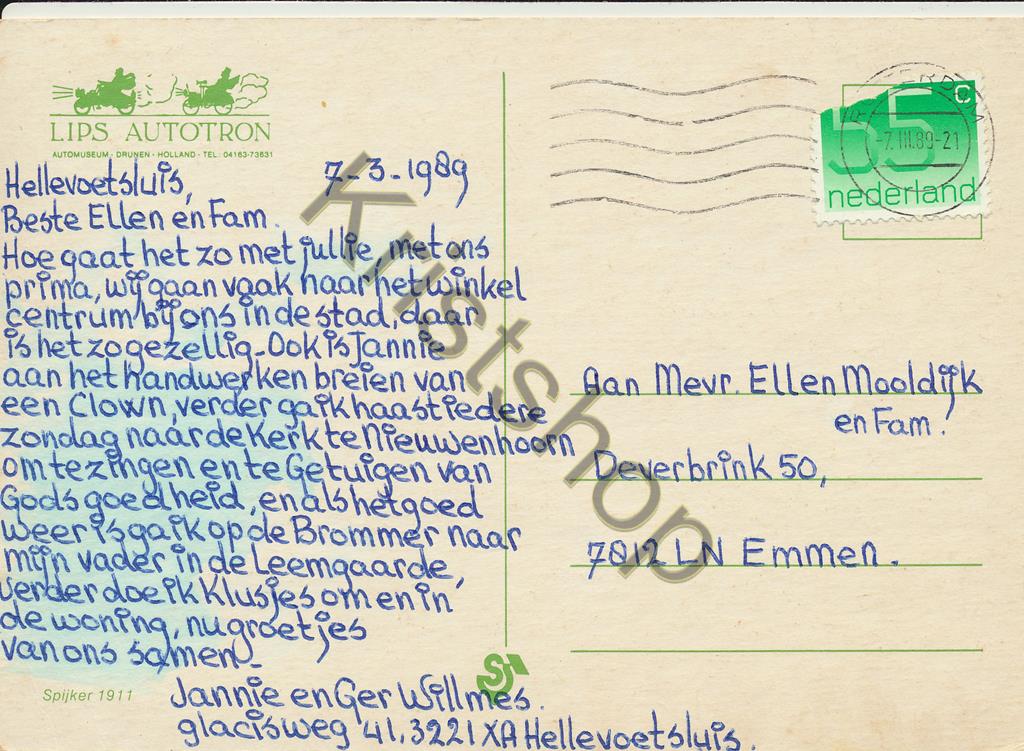 LIPS AUTOTRON
AUTOMUSEUM - DRUNEN - HOLLAND - TEL: 04163-73631
Hellevoetsluis, 7-3-1989
Beste Ellen en Fam.
Hoe gaat het zo met jullie, met ons
prima, wij gaan vaak naar het winkel
centrum bij ons in de stad, daar
is het zo gezellig. Ook is Jannie
aan het handwerken breien van
een Clown, verder ga ik haast iedere
zondag naar de Kerk te Nieuwenhoorn
om te zingen en te Getuigen van
Gods goedheid, en als het goed
weer is ga ik op de Brommer naar
mijn vader in de Leemgaarde,
verder doe ik Klusjes om en in
de woning, nu groetjes
van ons samen.
Jannie en Ger Willmes.
glacisweg 41, 3221 XA Hellevoetsluis.
Spijker 1911
55 c
nederland
-7.III.89-21
Aan Mevr. Ellen Mooldijk
en Fam.
Deverbrink 50,
7812 LN Emmen.
Kristshop